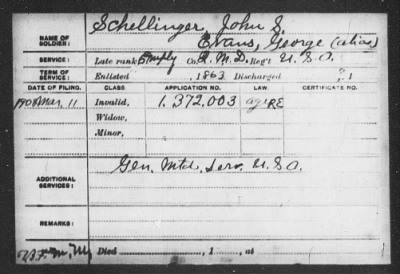 NAME OF SOLDIER: Schellinger, John S.
Evans, George (alias)
SERVICE: Late rank Co. Q. M. D. Reg't U. S. A.
TERM OF SERVICE: Enlisted , 1863 Discharged , 1
DATE OF FILING. CLASS. APPLICATION NO. LAW. CERTIFICATE NO.
1908 Mar. 11 Invalid, 1.372.003
Widow,
Minor,
ADDITIONAL SERVICES: Gen. Mtd. Serv. U. S. A.
REMARKS:
Died , 1 , at